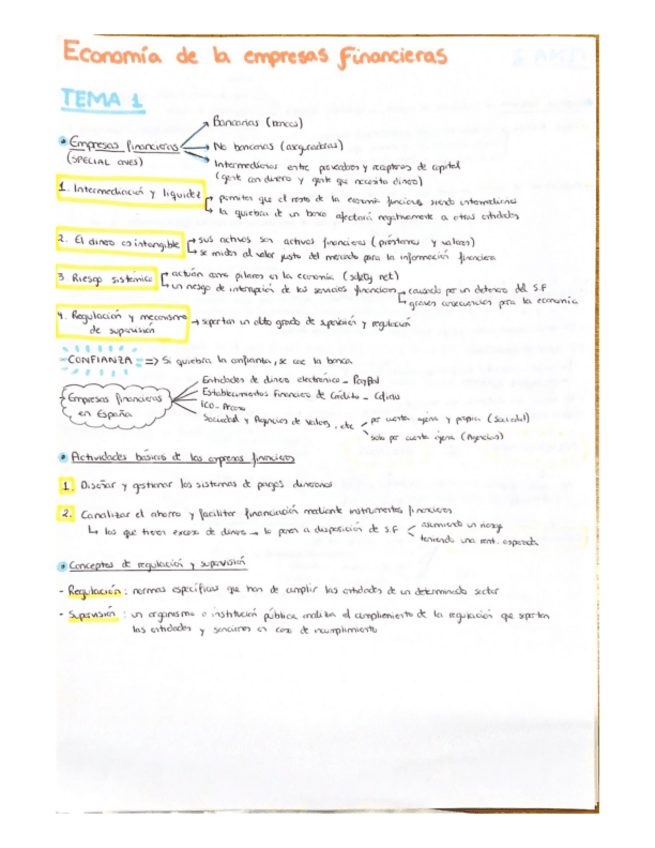 Economía de la empresas Financieras
TEMA 1
Bancarias (bancos)
• Empresas financieras
No bancarias (aseguradoras)
(SPECIAL ONES)
Intermediarios entre prestadores y receptores de capital
(gente con dinero y gente que necesita dinero)
1. Intermediación y liquidez
permiten que el resto de la economía funcione siendo intermediarios
la quiebra de un banco afectará negativamente a otras entidades
2. El dinero es intangible
sus activos son activos financieros (préstamos y valores)
se miden al valor justo del mercado para la información financiera
3. Riesgo sistémico
actúan como pilares en la economía (safety net)
un riesgo de interrupción de los servicios financieros
causado por un deterioro del S.F
graves consecuencias para la economía
4. Regulación y mecanismo de supervisión → soportan un alto grado de supervisión y regulación
CONFIANZA => Si quiebra la confianza, se cae la banca
Empresas financieras en España
Entidades de dinero electrónico - PayPal
Establecimientos Financieros de Crédito - Cofidis
ICO
Sociedad y Agencias de Valores, etc
por cuenta ajena y propia (Sociedad)
solo por cuenta ajena (Agencias)
• Actividades básicas de las empresas financieras
1. Diseñar y gestionar los sistemas de pagos
2. Canalizar el ahorro y facilitar financiación mediante instrumentos financieros
↳ los que tienen exceso de dinero → lo ponen a disposición de S.F
asumiendo un riesgo
teniendo una rent. esperada
• Conceptos de regulación y supervisión
- Regulación: normas específicas que han de cumplir las entidades de un determinado sector
- Supervisión: un organismo o institución pública analiza el cumplimiento de la regulación que soportan
las entidades y sanciones en caso de incumplimiento